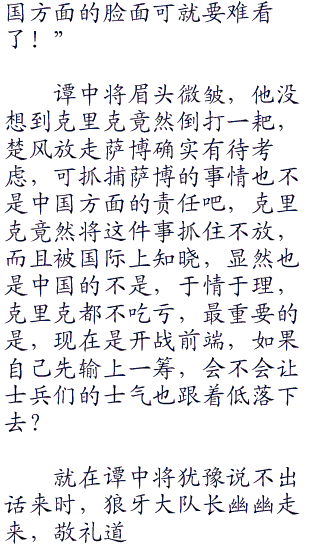 国方面的脸面可就要难看
了！”
谭中将眉头微皱，他没
想到克里克竟然倒打一耙，
楚风放走萨博确实有待考
虑，可抓捕萨博的事情也不
是中国方面的责任吧，克里
克竟然将这件事抓住不放，
而且被国际上知晓，显然也
是中国的不是，于情于理，
克里克都不吃亏，最重要的
是，现在是开战前端，如果
自己先输上一筹，会不会让
士兵们的士气也跟着低落下
去？
就在谭中将犹豫说不出
话来时，狼牙大队长幽幽走
来，敬礼道